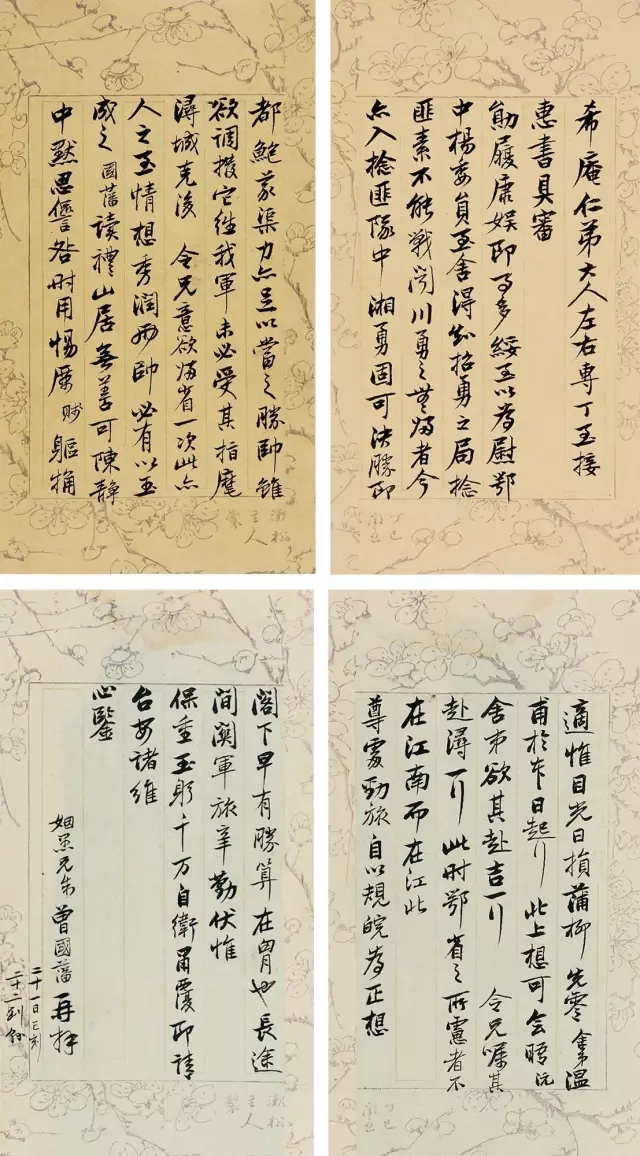 希庵仁弟大人左右專丁至接
惠書具審
勛履康娛即事多綏至以為慰鄂
中楊委員至舍得知招勇之局捻
匪素不能戰聞川勇之歸者今
亦入捻匪隊中 湘勇固可決勝即
都鮑蒙渠力亦足以當之勝帥雖
欲調撥它往我軍未必受其指麾
潯城克復 令兄意欲歸省一次此亦
人之至情想秀潤兩帥必有以玉
成之 國藩讀禮山居無善可陳靜
中默思愆咎時用惕厲賤軀猶
適惟目光日損蒲柳先零舍弟溫
甫於本日起行此上想可會晤沅
舍弟欲其赴吉一行 令兄囑其
赴潯一行此時鄂省之所慮者不
在江南而在江北
尊處勁旅自以規皖為正想
閣下早有勝算在胸也長途
間關軍旅辛勤伏惟
保重玉躬千万自衛肅覆即請
台安諸維
心鑒
姻愚兄制曾國藩再拜
二十一日巳刻
二十二到
丁巳
主人